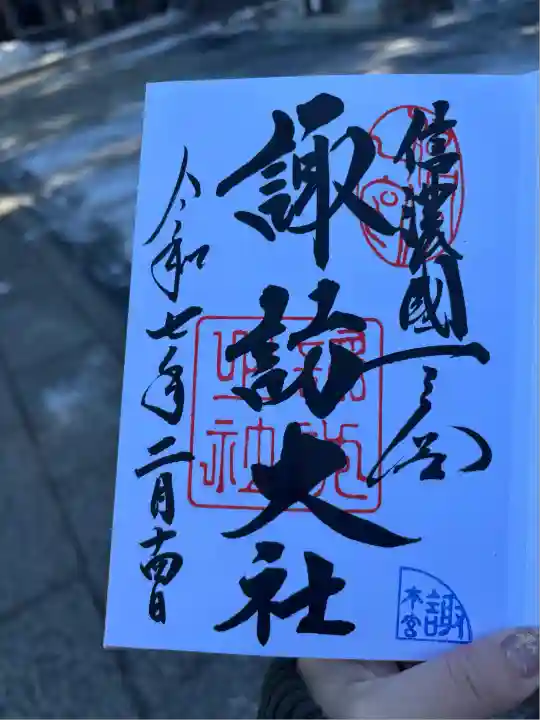 信濃國一之宮
諏訪大社
令和七年二月十四日
諏
本宮